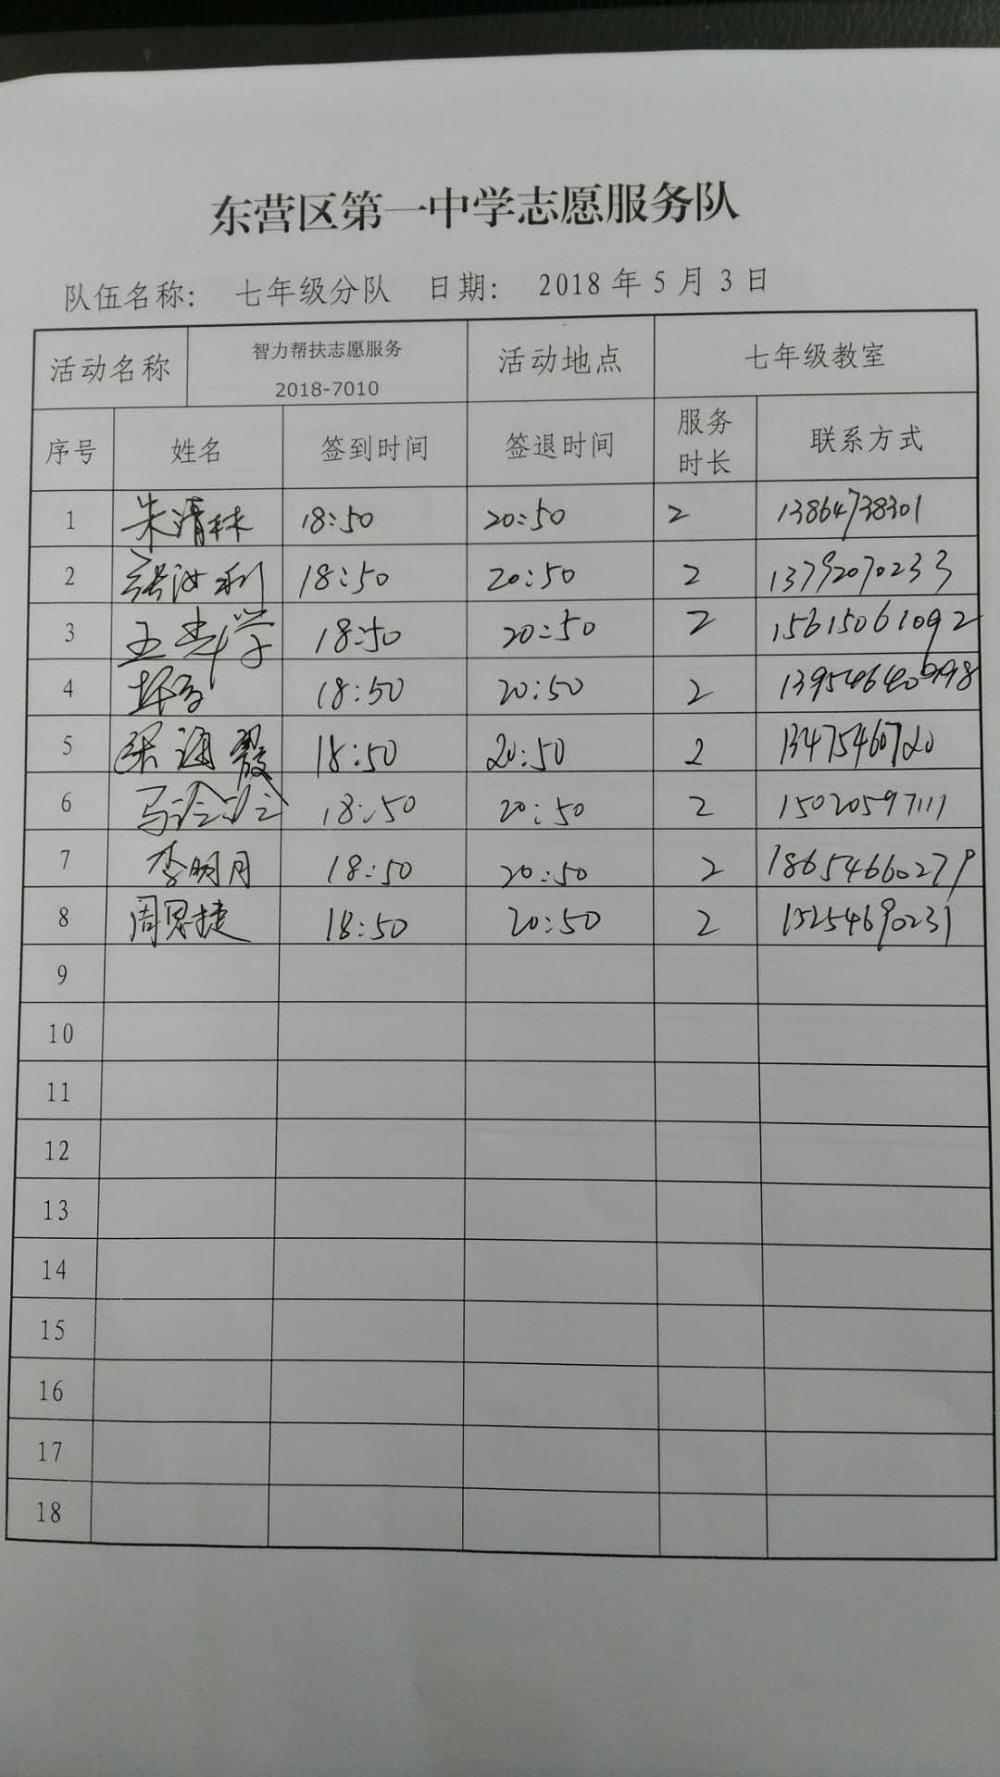 东营区第一中学志愿服务队
队伍名称: 七年级分队 日期: 2018 年 5 月 3 日
活动名称 智力帮扶志愿服务 2018-7010 活动地点 七年级教室
序号 姓名 签到时间 签退时间 服务时长 联系方式
1 朱清林 18:50 20:50 2 13864738301
2 18:50 20:50 2 13792070233
3 王 18:50 20:50 2 15615061092
4 18:50 20:50 2
5 张海霞 18:50 20:50 2 13475460720
6 马冷冷 18:50 20:50 2 15020597111
7 李明月 18:50 20:50 2 18654660279
8 周思捷 18:50 20:50 2 15254690231
9
10
11
12
13
14
15
16
17
18